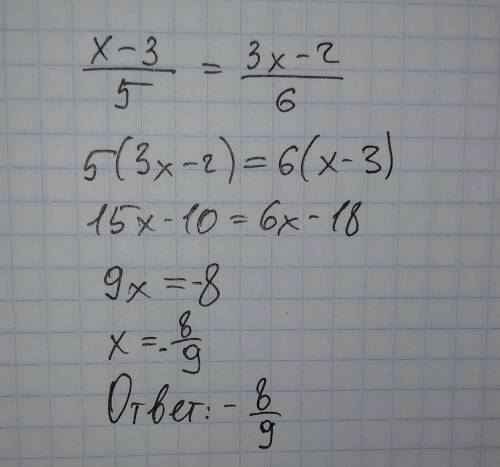 x-3/5 = 3x-2/6
5(3x-2)=6(x-3)
15x-10=6x-18
9x=-8
x=-8/9
Ответ: -8/9